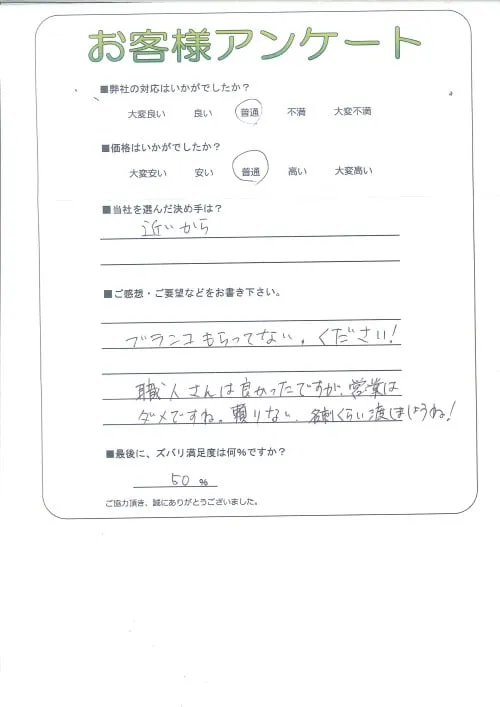 お客様アンケート
■弊社の対応はいかがでしたか？
大変良い 良い 普通 不満 大変不満
■価格はいかがでしたか？
大変安い 安い 普通 高い 大変高い
■当社を選んだ決め手は？
近いから
■ご感想・ご要望などをお書き下さい。
ブランコもらってない。ください！
職人さんは良かったですが、営業は
ダメですね。頼りない、名刺くらい渡しましょうね！
■最後に、ズバリ満足度は何％ですか？
50 %
ご協力頂き、誠にありがとうございました。